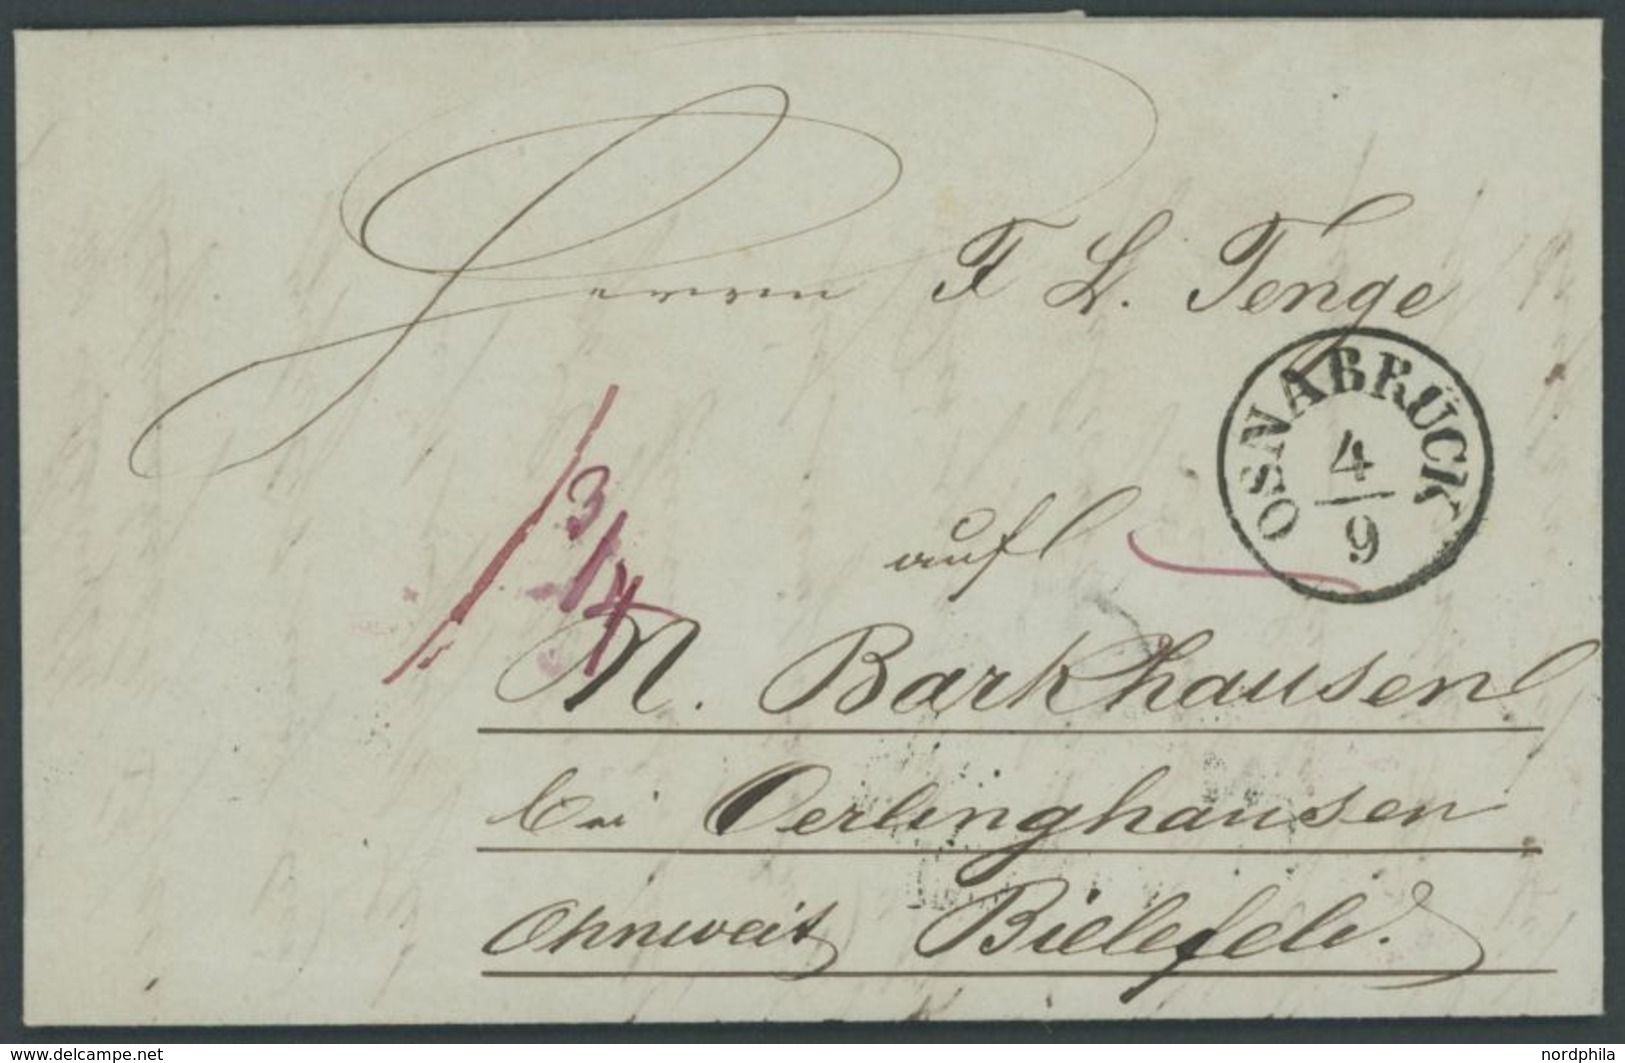 Herrn F L. Tenge
OSNABRÜCK
4
9
3/4
auf
N. Barkhausen
bei Oerlinghausen
ohnweit Bielefeld.
www.delcampe.net
nordphila